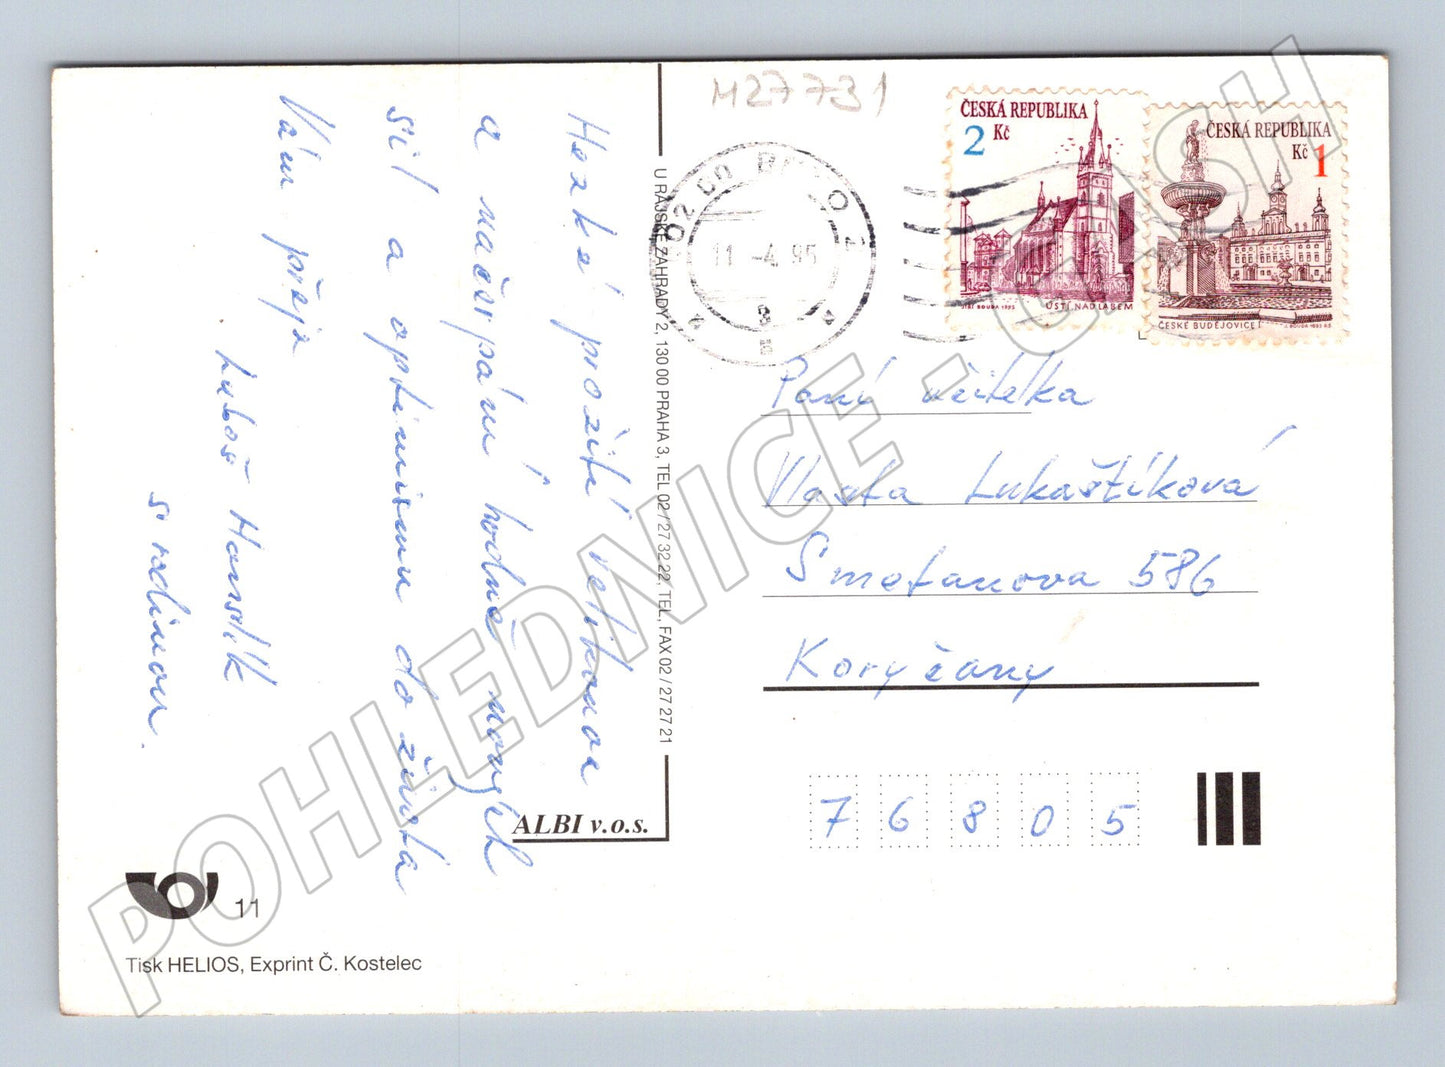 M27731
Hezké prožití Velikonoc
a načerpání hodně nových
sil a optimismu do života
Vám přeje
Luboš
s rodinou.
U RAJSKÉ ZAHRADY 2, 130 00 PRAHA 3, TEL 02 / 27 32 22, TEL, FAX 02 / 27 27 21
ALBI v.o.s.
11
Tisk HELIOS, Exprint Č. Kostelec
11 -4 95
ČESKÁ REPUBLIKA
2 Kč
JIŘÍ BOUDA 1993
ÚSTÍ NAD LABEM
ČESKÁ REPUBLIKA
Kč 1
ČESKÉ BUDĚJOVICE
J. BOUDA 1993
Paní učitelka
Vlasta Lukaštíková
Smetanova 586
Koryčany
76805
POHLEDNICE - CASH